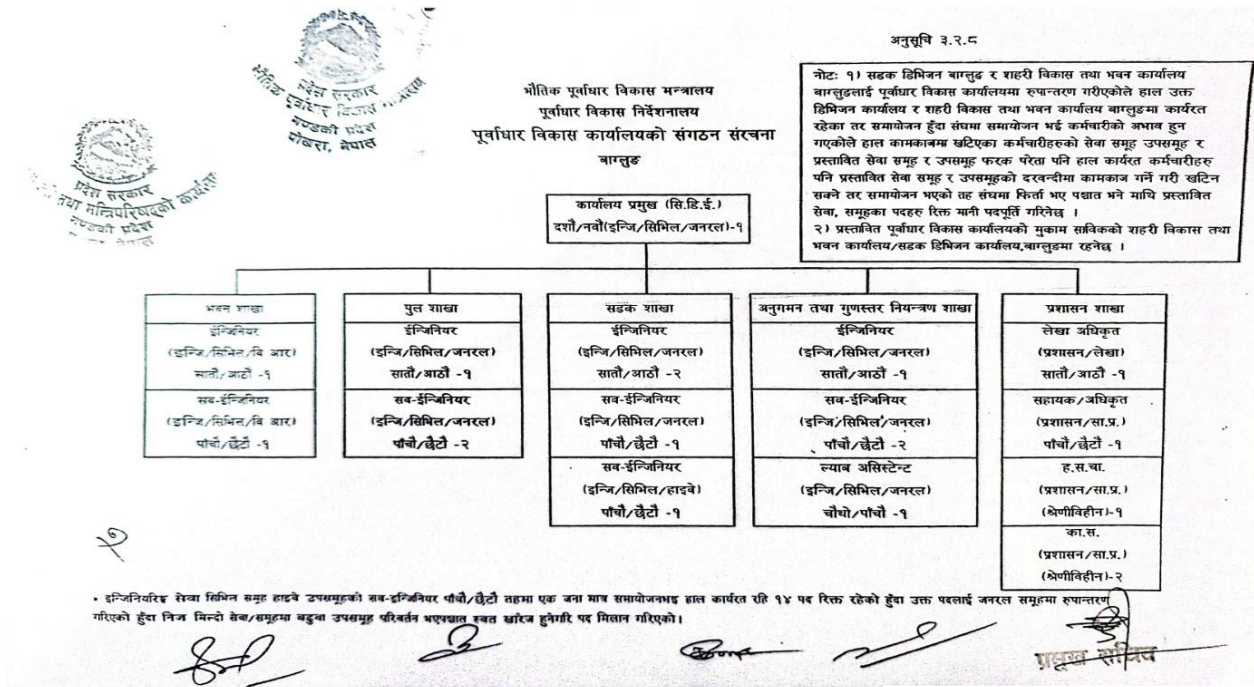 अनुसूचि ३.२.८
प्रदेश सरकार
भौतिक पूर्वाधार विकास मन्त्रालय
गण्डकी प्रदेश
पोखरा, नेपाल
प्रदेश सरकार
तथा मन्त्रिपरिषद्को कार्यालय
गण्डकी प्रदेश
भौतिक पूर्वाधार विकास मन्त्रालय
पूर्वाधार विकास निर्देशनालय
पूर्वाधार विकास कार्यालयको संगठन संरचना
बाग्लुङ
नोटः १) सडक डिभिजन बाग्लुङ र शहरी विकास तथा भवन कार्यालय
बाग्लुङलाई पूर्वाधार विकास कार्यालयमा रुपान्तरण गरीएकोले हाल उक्त
डिभिजन कार्यालय र शहरी विकास तथा भवन कार्यालय बाग्लुङमा कार्यरत
रहेका तर समायोजन हुँदा संघमा समायोजन भई कर्मचारीको अभाव हुन
गएकोले हाल कामकाजमा खटिएका कर्मचारीहरुको सेवा समूह उपसमूह र
प्रस्तावित सेवा समूह र उपसमूह फरक परेता पनि हाल कार्यरत कर्मचारीहरु
पनि प्रस्तावित सेवा समूह र उपसमूहको दरवन्दीमा कामकाज गर्ने गरी खटिन
सक्ने तर समायोजन भएको तह संघमा फिर्ता भए पश्चात भने माथि प्रस्तावित
सेवा, समूहका पदहरु रिक्त मानी पदपूर्ति गरिनेछ ।
२) प्रस्तावित पूर्वाधार विकास कार्यालयको मुकाम साविकको शहरी विकास तथा
भवन कार्यालय/सडक डिभिजन कार्यालय,बाग्लुङमा रहनेछ ।
कार्यालय प्रमुख (सि.डि.ई.)
दशौं/नवौं(इन्जि/सिभिल/जनरल)-१
भवन शाखा
ईन्जिनियर
(इन्जि/सिभिल/बि आर)
सातौ/आठौ -१
सव-ईन्जिनियर
(इन्जि/सिभिल/बि आर)
पाँचौ/छैटौ -१
पुल शाखा
ईन्जिनियर
(इन्जि/सिभिल/जनरल)
सातौ/आठौ -१
सव-ईन्जिनियर
(इन्जि/सिभिल/जनरल)
पाँचौ/छैटौ -२
सडक शाखा
ईन्जिनियर
(इन्जि/सिभिल/जनरल)
सातौ/आठौ -२
सव-ईन्जिनियर
(इन्जि/सिभिल/जनरल)
पाँचौ/छैटौ -१
सव-ईन्जिनियर
(इन्जि/सिभिल/हाइवे)
पाँचौ/छैटौ -१
अनुगमन तथा गुणस्तर नियन्त्रण शाखा
ईन्जिनियर
(इन्जि/सिभिल/जनरल)
सातौ/आठौ -१
सव-ईन्जिनियर
(इन्जि/सिभिल/जनरल)
पाँचौ/छैटौ -२
ल्याब असिस्टेन्ट
(इन्जि/सिभिल/जनरल)
चौथो/पाँचौ -१
प्रशासन शाखा
लेखा अधिकृत
(प्रशासन/लेखा)
सातौ/आठौ -१
सहायक/अधिकृत
(प्रशासन/सा.प्र.)
पाँचौ/छैटौ -१
ह.स.चा.
(प्रशासन/सा.प्र.)
(श्रेणीविहीन)-१
का.स.
(प्रशासन/सा.प्र.)
(श्रेणीविहिन)-२
• इन्जिनियरिङ सेवा सिभिल समूह हाइवे उपसमूहको सव-इन्जिनियर पाँचौ/छैटौ तहमा एक जना मात्र समायोजनभइ हाल कार्यरत रहि १४ पद रिक्त रहेको हुँदा उक्त पदलाई जनरल समूहमा रुपान्तरण
गरिएको हुँदा निज मिल्दो सेवा/समूहमा बढुवा उपसमूह परिवर्तन भएपश्चात स्वत खारेज हुनेगरि पद मिलान गरिएको।
प्रमुख सचिव